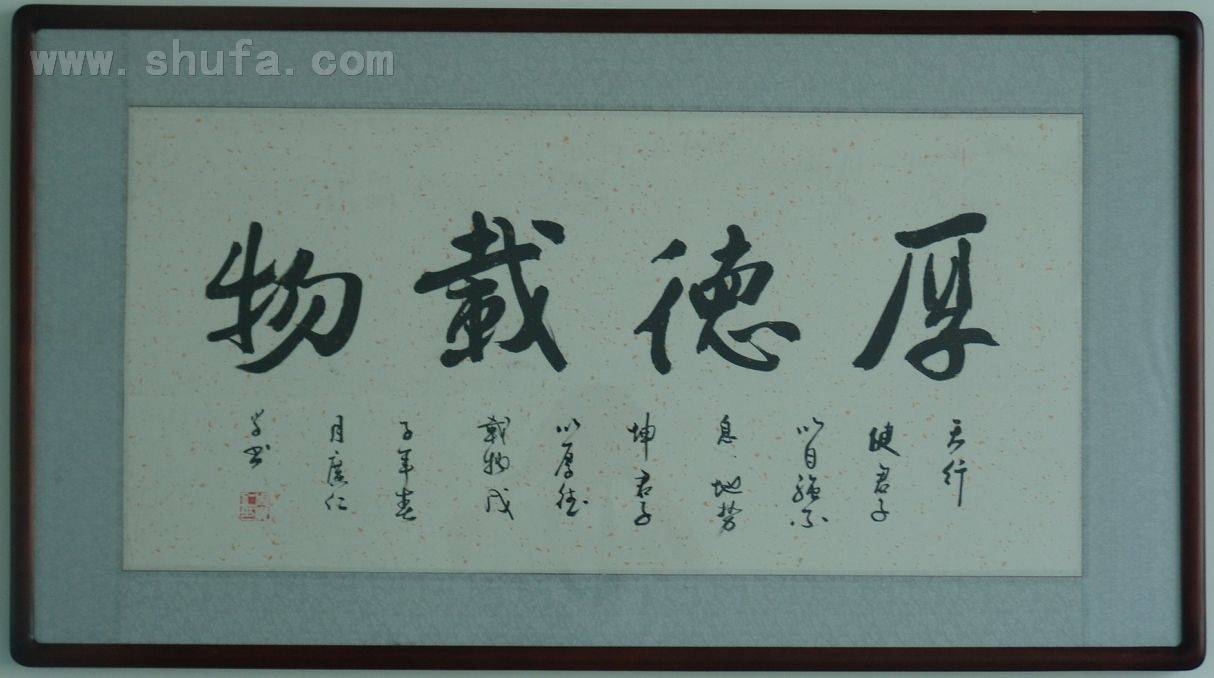 www.shufa.com
厚德載物
天行
健君子
以自强不
息地势
坤君子
以厚德
載物戊
子年春
月广仁
学书